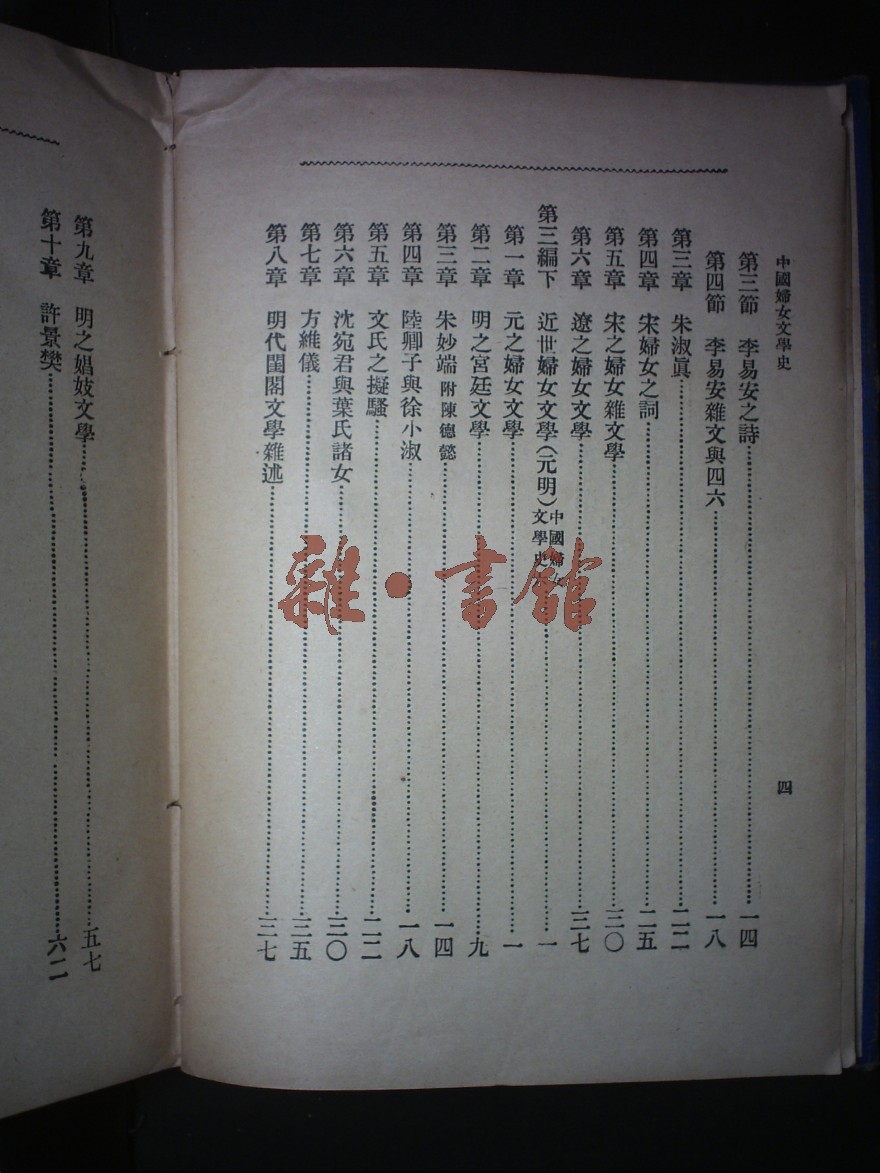 中國婦女文學史
四
第三節 李易安之詩 一四
第四節 李易安雜文與四六 一八
第三章 朱淑眞 二二
第四章 宋婦女之詞 二五
第五章 宋之婦女雜文學 三〇
第六章 遼之婦女文學 三七
第三編下 近世婦女文學（元明）中國婦女文學史 一
第一章 元之婦女文學 一
第二章 明之宮廷文學 九
第三章 朱妙端附陳德懿 一四
第四章 陸卿子與徐小淑 一八
第五章 文氏之擬騷 二二
第六章 沈宛君與葉氏諸女 三〇
第七章 方維儀 三五
第八章 明代閨閣文學雜述 三七
第九章 明之娼妓文學 五七
第十章 許景樊 六二
雜·書館